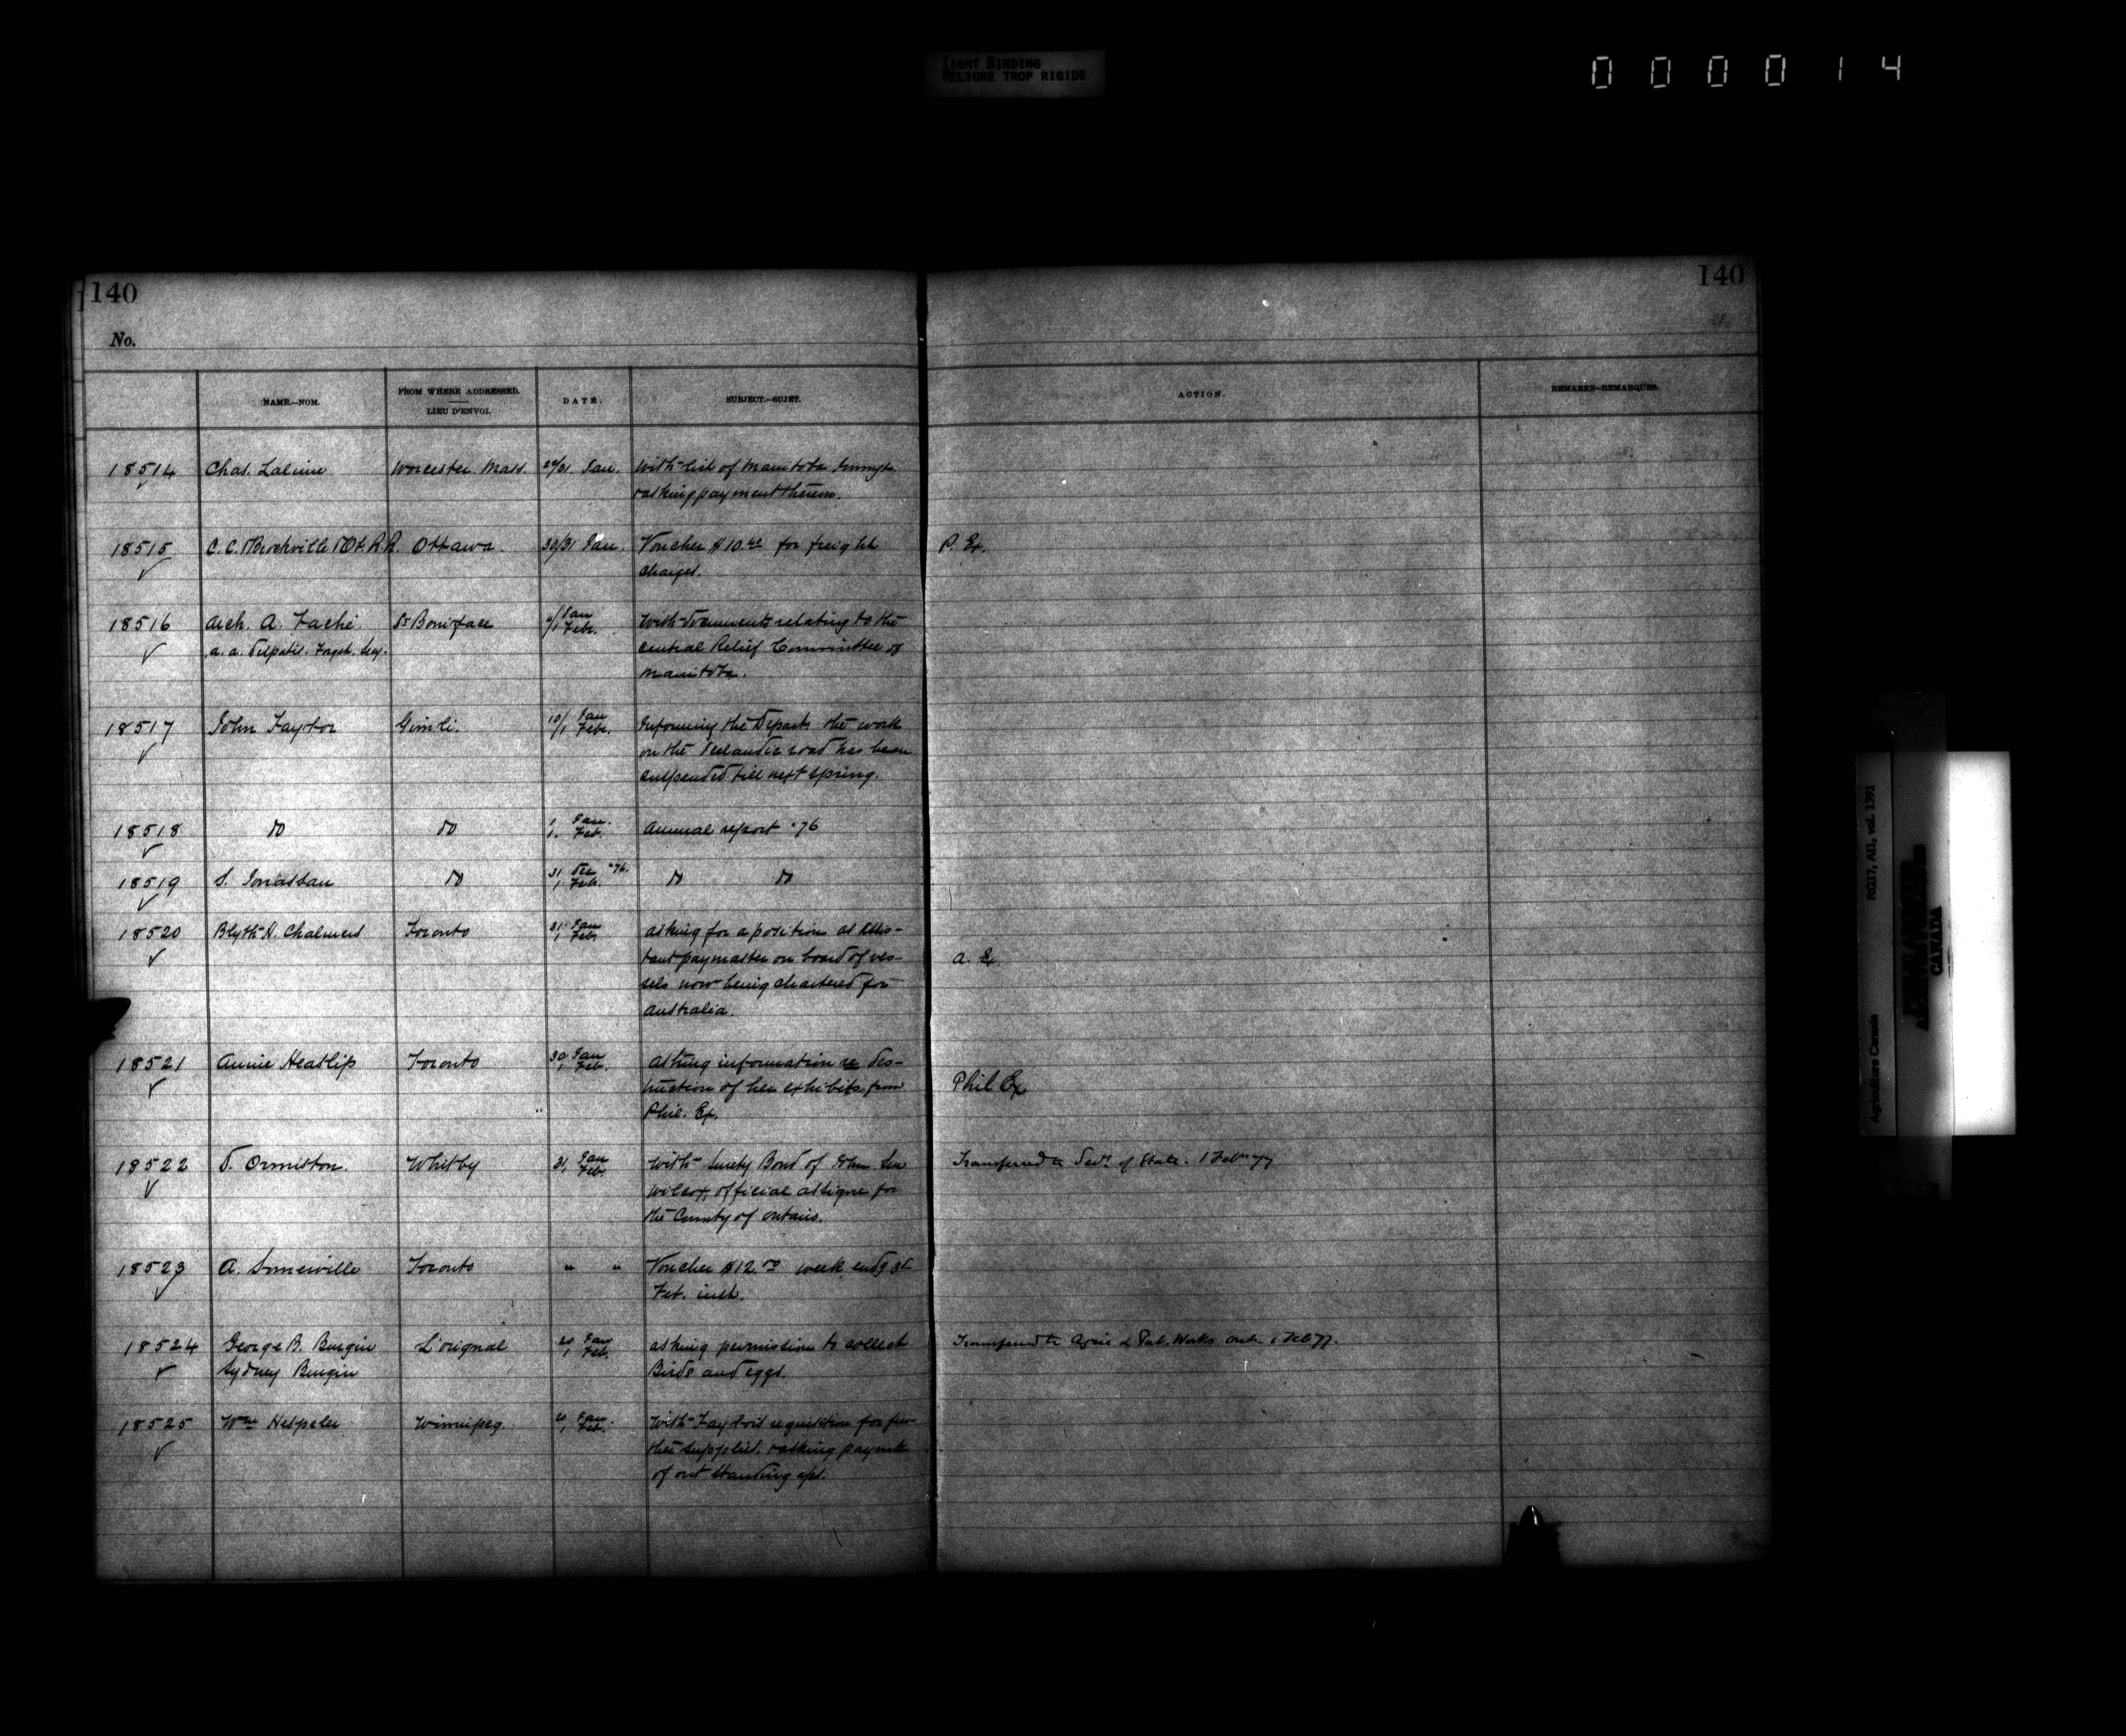 TIGHT BINDING
RELIURE TROP RIGIDE
000014
140
140
No.
NAME.—NOM.
FROM WHERE ADDRESSED.
LIEU D'ENVOI.
DATE.
SUBJECT.—SUJET.
ACTION.
REMARKS—REMARQUES.
18514 Chas. Lalime Worcester Mass. 29/31 Jan. With list of Manitoba Immgts.
& asking payment therein.
18515 C. C. & Brockville & Ot. R. R. Ottawa. 30/31 Jan. Voucher $10.42 for freight P. Ex.
charges.
18516 Arch. A. Taché St Boniface 4/1 Jan Febr. With documents relating to the
a. a. Forget. Secy. Central Relief Committee of
Manitoba.
18517 John Taylor Gimli. 10/1 Jan Febr. Informing the Departt the work
on the Icelandic road has been
suspended till next spring.
18518 do do 1 Jan. 1. Feb. Annual report '76
18519 S. Jonassau do 31 Dec '76. 1 Feb. do do
18520 Blyth N. Chalmers Toronto 31 Jan 1 Feb. Asking for a position as assis-
tant paymaster on board of ves- A. Ex.
sels now being chartered for
Australia.
18521 Annie Heaslip Toronto 30 Jan 1 Feb. Asking information re des-
truction of her exhibits from Phil Ex
Phil. Ex.
18522 D. Ormiston. Whitby 31 Jan 1 Feb. With Surety Bond of John Wilcox, Transferred to Secy of State. 1 Feb 77
official assignee for
the County of Ontario.
18523 A. Somerville Toronto " " Voucher $12.00 week endg 3d
Feb. inst.
18524 George B. Burgin L'orignal Jan 1 Feb. Asking permission to collect Transferred to Agric & Pub. Works Ont. 1 Feb 77.
Sydney Burgin Birds and eggs.
18525 Wm Hespeler Winnipeg. Jan. 1 Feb. With Taylor's requisition for fur-
ther supplies & asking paymt
of out standing a/cs.
Agriculture Canada
RG17, AII, vol. 1391
CANADA